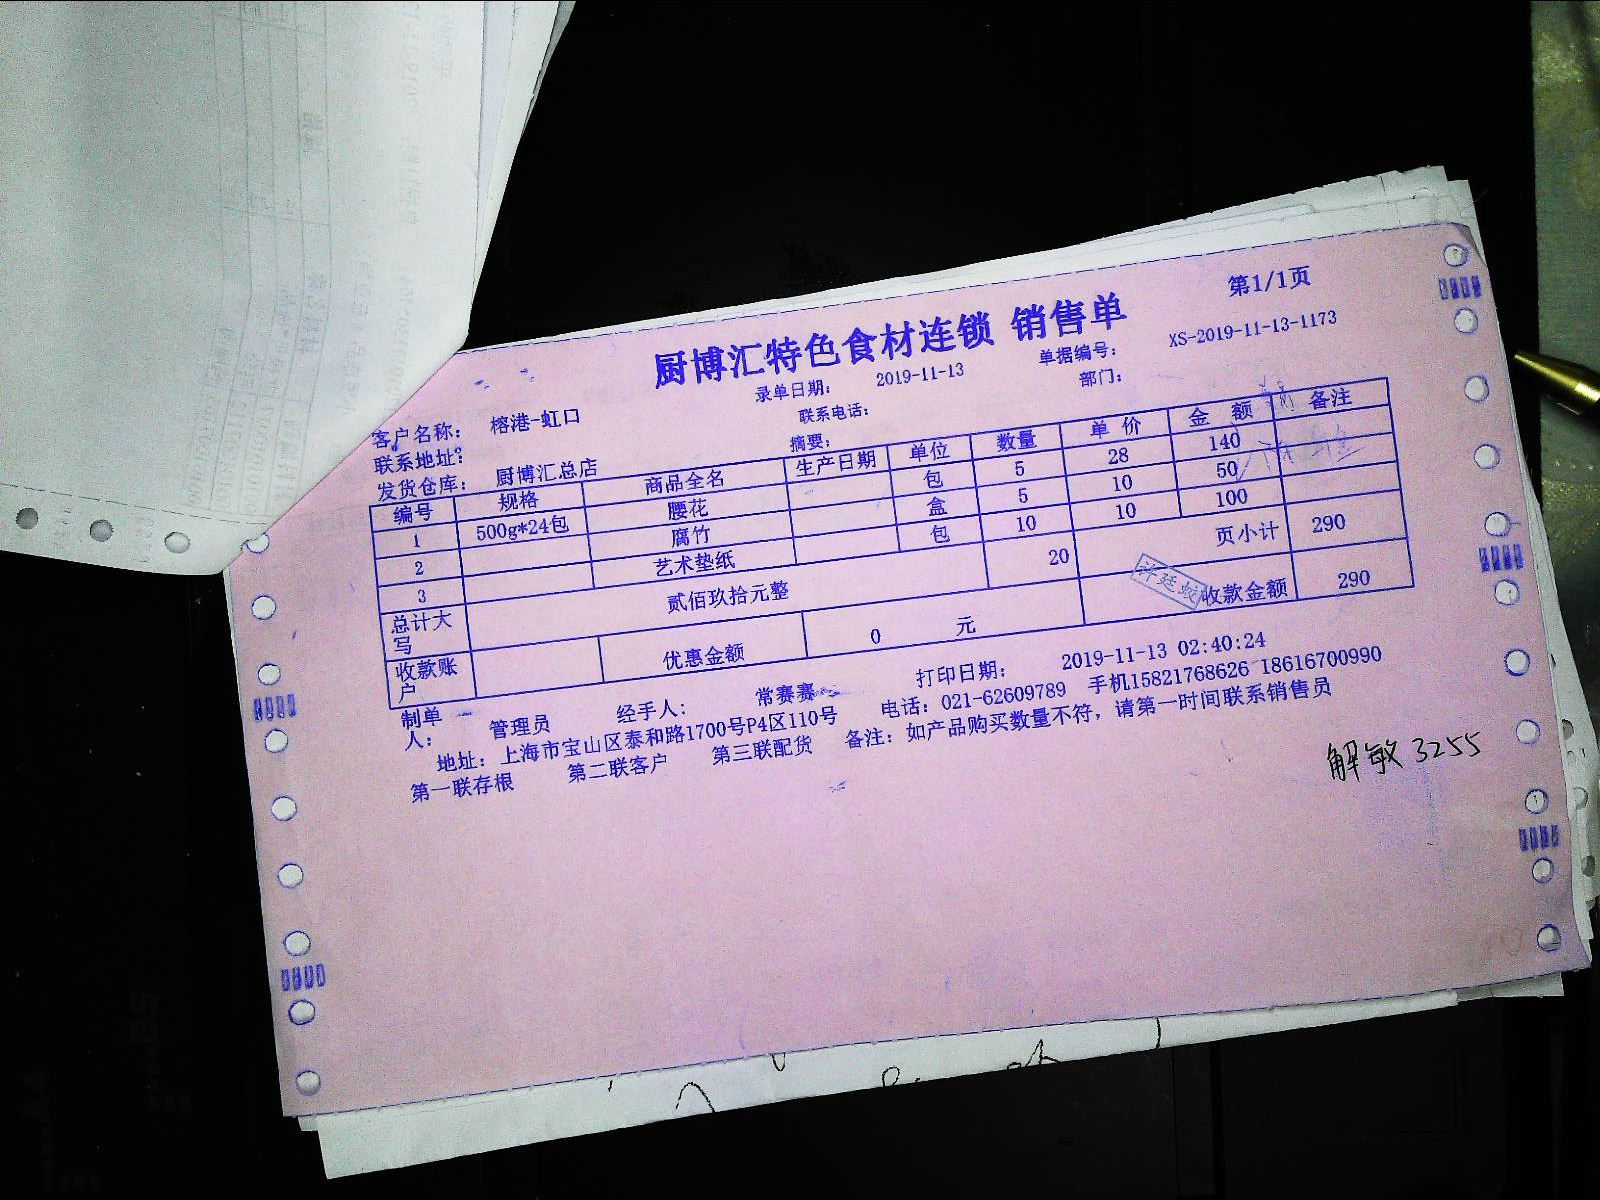 第1/1页
厨博汇特色食材连锁 销售单
录单日期： 2019-11-13 单据编号： XS-2019-11-13-1173
客户名称： 榕港-虹口 联系电话： 部门：
联系地址： 摘要：
发货仓库： 厨博汇总店
编号 规格 商品全名 生产日期 单位 数量 单价 金额 备注
1 500g*24包 腰花 包 5 28 140
2 腐竹 盒 5 10 50
3 艺术垫纸 包 10 10 100
总计大写 贰佰玖拾元整 20 页小计 290
收款账户 优惠金额 0 元 收款金额 290
许廷蛟
制单人： 管理员 经手人： 常赛赛 打印日期： 2019-11-13 02:40:24
地址：上海市宝山区泰和路1700号P4区110号 电话：021-62609789 手机15821768626 18616700990
第一联存根 第二联客户 第三联配货 备注：如产品购买数量不符，请第一时间联系销售员
解敏 3255